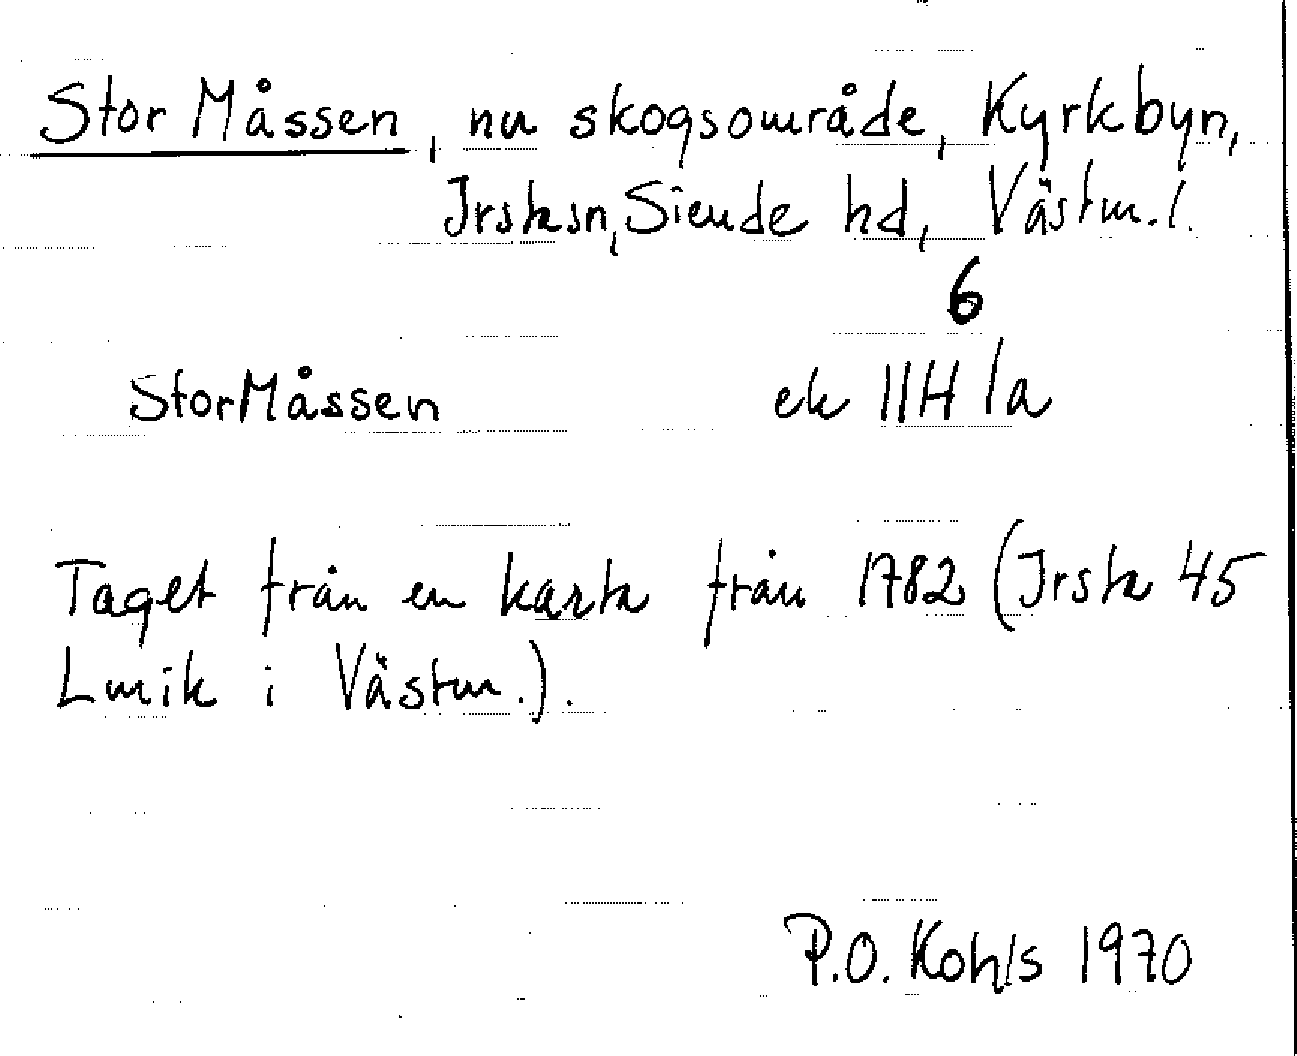 Stor Måssen, nu skogsområde, Kyrkbyn,
Irsta sn, Siende hd, Västm. l.
6
StorMåssen ek 11H 1a
Taget från en karta från 1782 (Irsta 45
Lmik i Västm.).
P.O. Kohls 1970